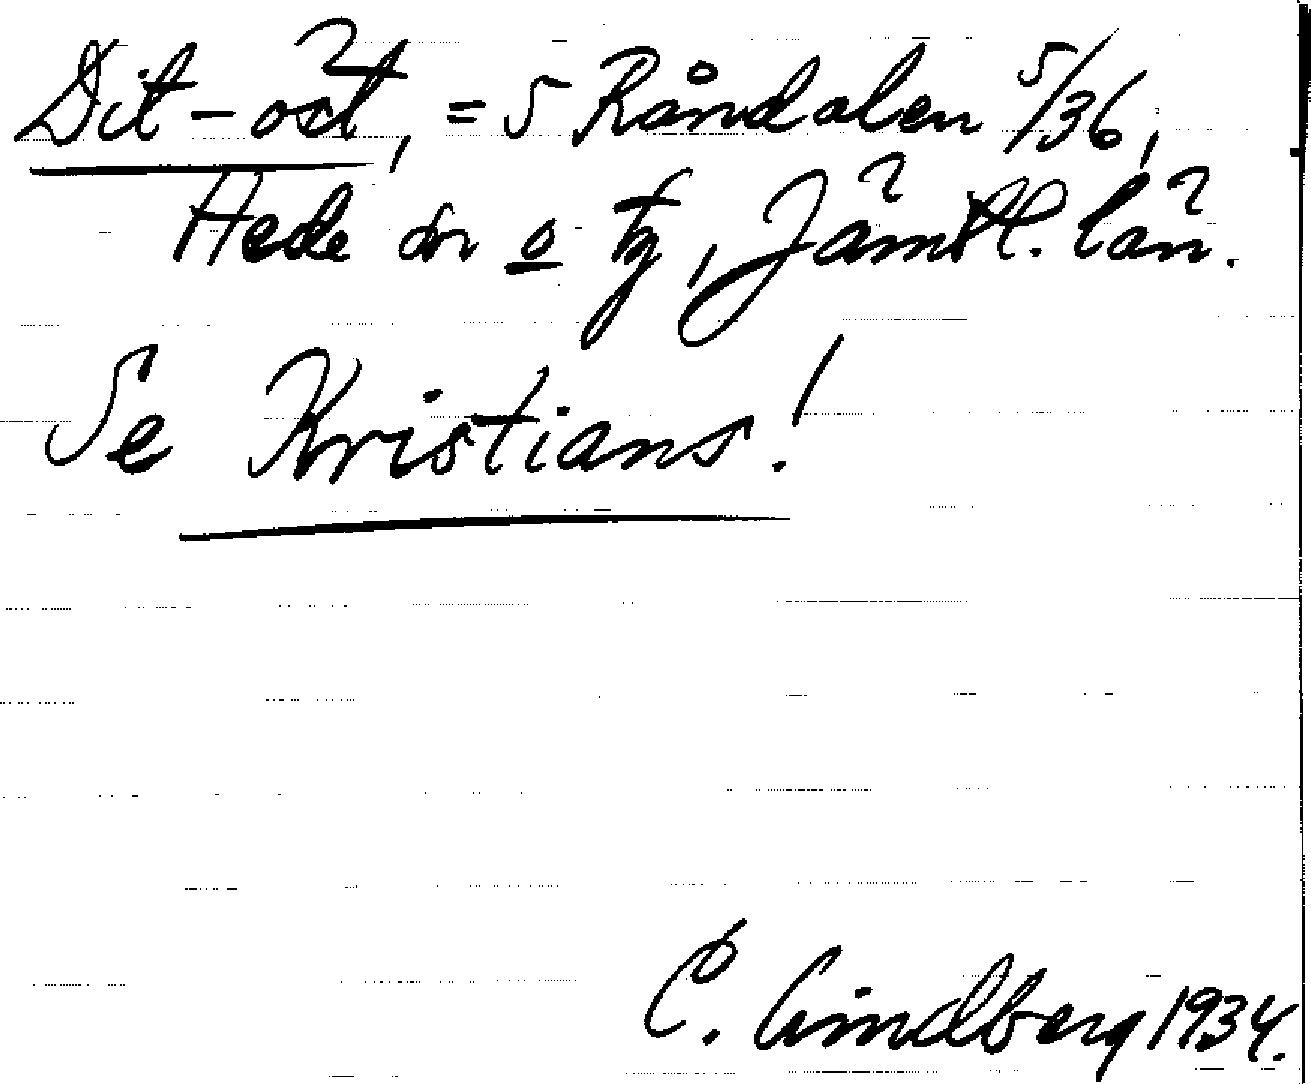 Dit-öst, = 5 Råndalen 5/36,
Hede sn o tg, Jämtl. län.
Se Kristians!
C. Lindberg 1934.